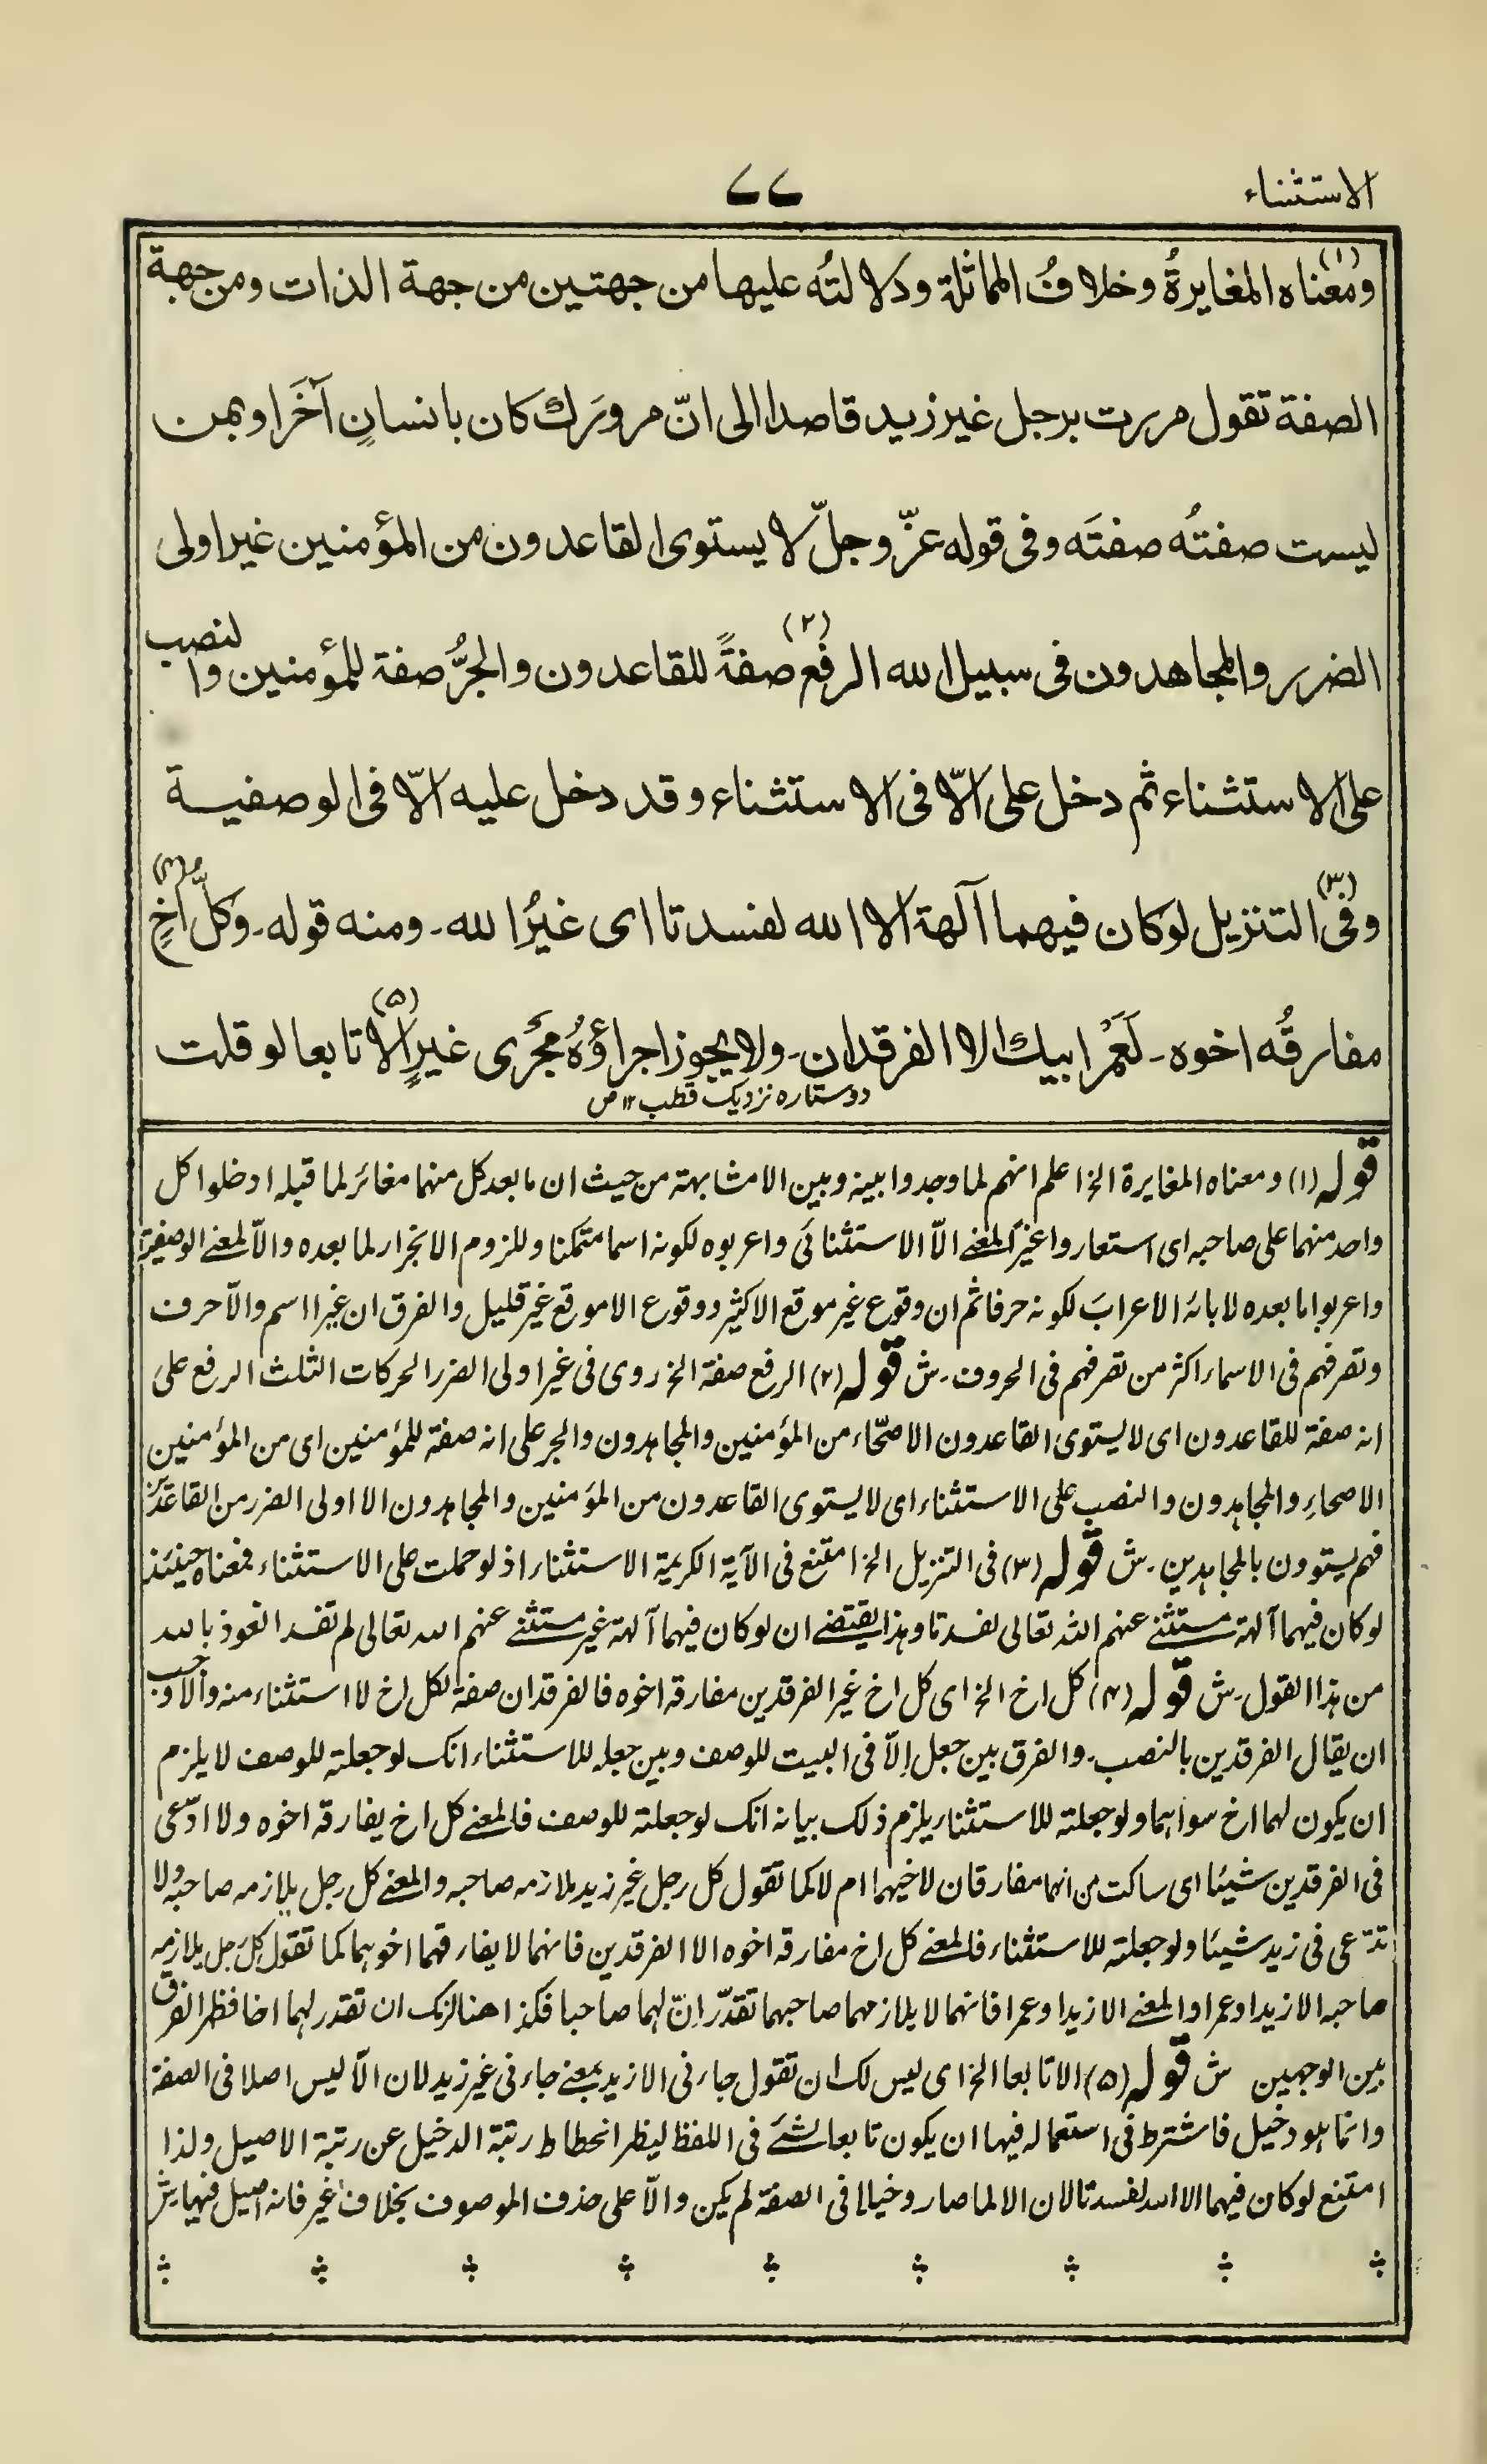 الاستثناء
۷۷
(۱) ومعناه المغايرةُ وخلافُ المماثلة ودلالتُه عليها من جهتين من جهة الذات ومن جهة
الصفة تقول مررت برجل غير زيد قاصدا الى انّ مرورَك كان بانسانٍ آخَرَ او بمن
ليست صفتُه صفتَه وفى قوله عزّ وجلّ لا يستوى القاعدون من المؤمنين غير اولى
الضرر والمجاهدون فى سبيل الله الرفع (۲) صفةً للقاعدون والجرُّ صفة للمؤمنين والنصب
على الاستثناء ثم دخل على الّا فى الاستثناء وقد دخل عليه الّا فى الوصفية
(۳) وفى التنزيل لو كان فيهما آلهة الا الله لفسدتا اى غيرُ الله ـ ومنه قوله ـ وكلُّ اخٍ (۴)
مفارقُه اخوه ـ لَعَمْرُ ابيك الا الفرقدان ـ ولا يجوز اجراؤُهُ مُجْرَى غيرٍ الّا (۵) تابعا لو قلت
دو ستاره نزدیک قطب ۱۲ ص
قوله (۱) ومعناه المغايرة الخ اعلم انهم لما وجدوا بينه وبين الا مشابهة من حيث ان ما بعد كل منهما مغائر لما قبله ادخلوا كل
واحد منهما على صاحبه اى استعاروا غير المعنى الّا الاستثنائى واعربوه لكونه اسما متمكنا وللزوم الانجرار لما بعده والّا لمعنى الوصفية
واعربوا ما بعده لابائه الاعرابَ لكونه حرفا ثم ان وقوع غير موقع الا كثير ووقوع الا موقع غير قليل والفرق ان غيرا اسم والّا حرف
وتصرفهم فى الاسماء اكثر من تصرفهم فى الحروف ـ ش قوله (۲) الرفع صفة الخ روى فى غير اولى الضرر الحركات الثلث الرفع على
انه صفة للقاعدون اى لا يستوى القاعدون الاصحّاء من المؤمنين والمجاهدون والجر على انه صفة للمؤمنين اى من المؤمنين
الاصحاءِ والمجاهدون والنصب على الاستثناء اى لا يستوى القاعدون من المؤمنين والمجاهدون الا اولى الضرر من القاعدين
فهم يستوون بالمجاهدين ـ ش قوله (۳) فى التنزيل الخ امتنع فى الآية الكريمة الاستثناء اذ لو حملت على الاستثناء فمعناه حينئذ
لو كان فيهما آلهة مستثنى عنهم الله تعالى لفسدتا وهذا يقتضى ان لو كان فيهما آلهة غير مستثنى عنهم الله تعالى لم تفسدا نعوذ بالله
من هذا القول ـ ش قوله (۴) كل اخ الخ اى كل اخ غير الفرقدين مفارقه اخوه فالفرقدان صفة لكل اخ لا استثناء منه والا وجب
ان يقال الفرقدين بالنصب ـ والفرق بين جعل اِلّا فى البيت للوصف وبين جعله للاستثناء انك لو جعلته للوصف لا يلزم
ان يكون لهما اخ سواهما ولو جعلته للاستثناء يلزم ذلك بيانه انك لو جعلته للوصف فالمعنى كل اخ يفارقه اخوه ولا ادّعى
فى الفرقدين شيئا اى ساكت من انهما مفارقان لاخيهما ام لا كما تقول كل رجل غير زيد يلازمه صاحبه والمعنى كل رجل يلازمه صاحبه ولا
تدّعى فى زيد شيئا ولو جعلته للاستثناء فالمعنى كل اخ مفارقه اخوه الا الفرقدين فانهما لا يفارقهما اخوهما كما تقول كل رجل يلازمه
صاحبه الا زيدا وعمرا والمعنى الا زيدا وعمرا فانهما لا يلازمهما صاحبهما تقدّر انّ لهما صاحبا فكذا هنا لزمك ان تقدر لهما اخا فظهر الفرق
بين الوجهين ش قوله (۵) الا تابعا الخ اى ليس لك ان تقول جاءنى الا زيد بمعنى جاءنى غير زيد لان الّا ليس اصلا فى الصفة
وانما هو دخيل فاشترط فى استعماله فيها ان يكون تابعا لشئ فى اللفظ ليظهر انحطاط رتبة الدخيل عن رتبة الاصيل ولذا
امتنع لو كان فيهما الا الله لفسدتا لان الا لما صار دخيلا فى الصفة لم يكن والّا على حذف الموصوف بخلاف غير فانه اصيل فيها ش